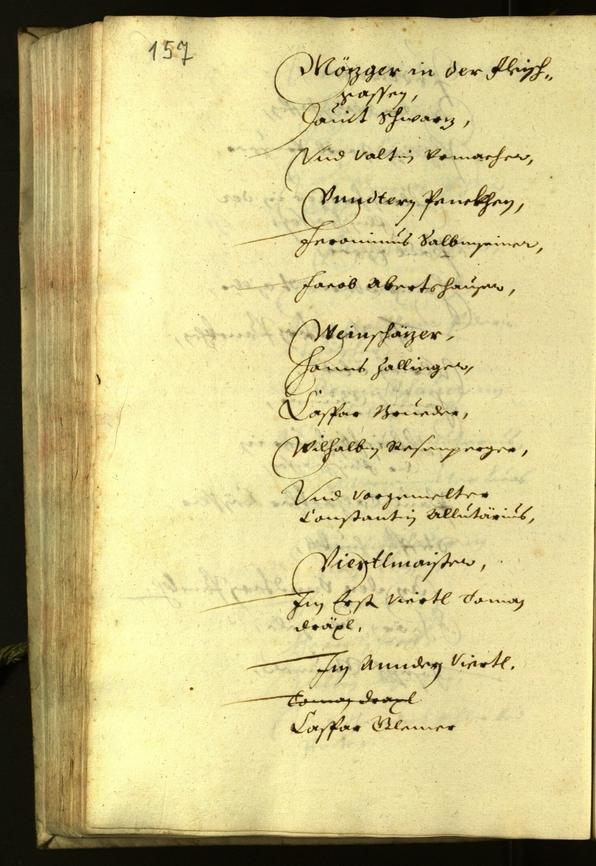 157
Mözger in der Fleisch-
passen,
Davit Schwarz,
Vnd Valtin Vemacher,
Vnndtern Penckhen,
Jeronimus Salbmseiner,
Jacob Abertshauser,
Weinschäzer,
Hanns Zallinger,
Caspar Brueder,
Wilhalbm Rosenperger,
Vnd vorgemelter
Constantin Allutärius,
Viertlmaister,
Im Erst Viertl Toman
dräxl,
Im Annder Viertl.
Toman draxl
Caspar Clemer